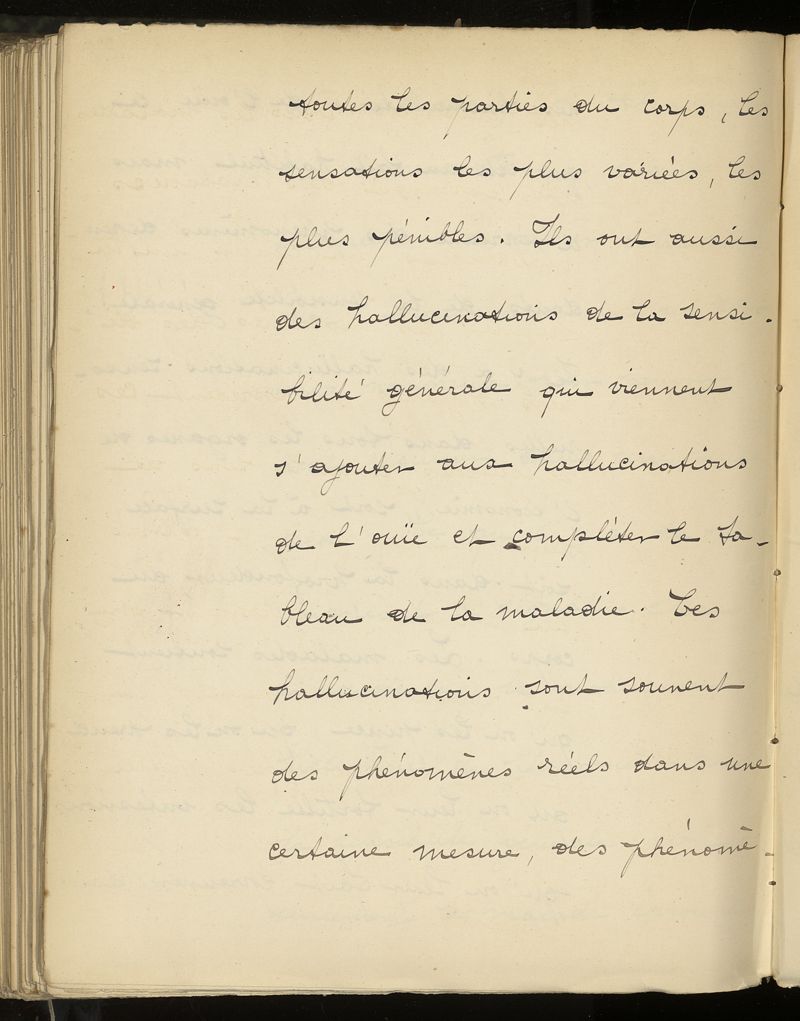 toutes les parties du corps, les
sensations les plus variées, les
plus pénibles. Ils ont aussi
des hallucinations de la sensi-
bilité générale qui viennent
s'ajouter aux hallucinations
de l'ouïe et compléter le ta-
bleau de la maladie. Ces
hallucinations sont souvent
des phénomènes réels dans une
certaine mesure, des phénomè-